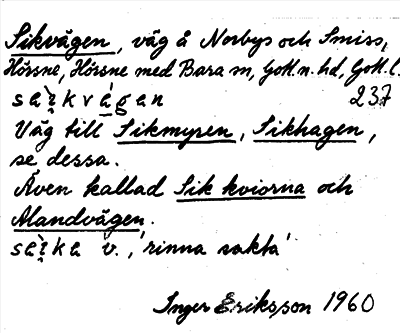 Sikvägen, väg å Norbys och Smiss,
Hörsne, Hörsne med Bara sn, Gotl. n. hd, Gotl. l.
237
Väg till Sikmyren, Sikhagen,
se dessa.
Även kallad Sik kviorna och
Alandvägen.
v., 'rinna sakta'
Inger Eriksson 1960